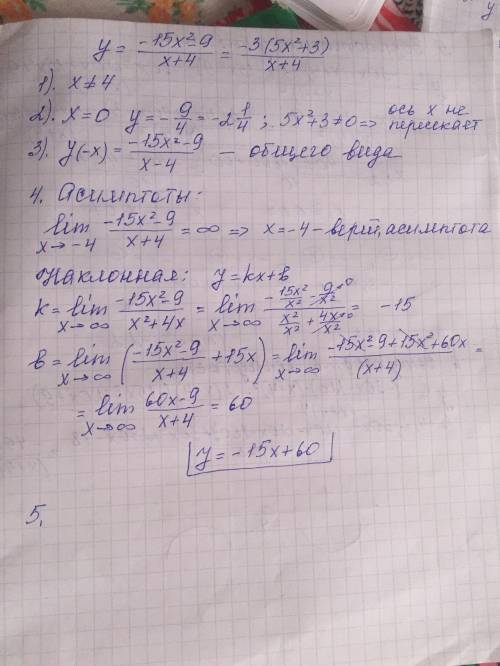 y = (-15x²-9)/(x+4) = (-3(5x²+3))/(x+4)
1). x≠4
2). x=0 y=-9/4=-2 1/4 ; 5x²+3≠0 => ось x не перескает
3). y(-x) = (-15x²-9)/(x-4) — общего вида
4. Асимптоты:
lim x→-4 (-15x²-9)/(x+4) = ∞ => x=-4 – верт. асимптота
Наклонная: y=kx+b
k = lim x→∞ (-15x²-9)/(x²+4x) = lim x→∞ (-15x²/x² - 9/x²→0)/(x²/x² + 4x/x²→0) = -15
b = lim x→∞ ((-15x²-9)/(x+4) + 15x) = lim x→∞ (-15x²-9+15x²+60x)/(x+4) =
= lim x→∞ (60x-9)/(x+4) = 60
y=-15x+60
5.